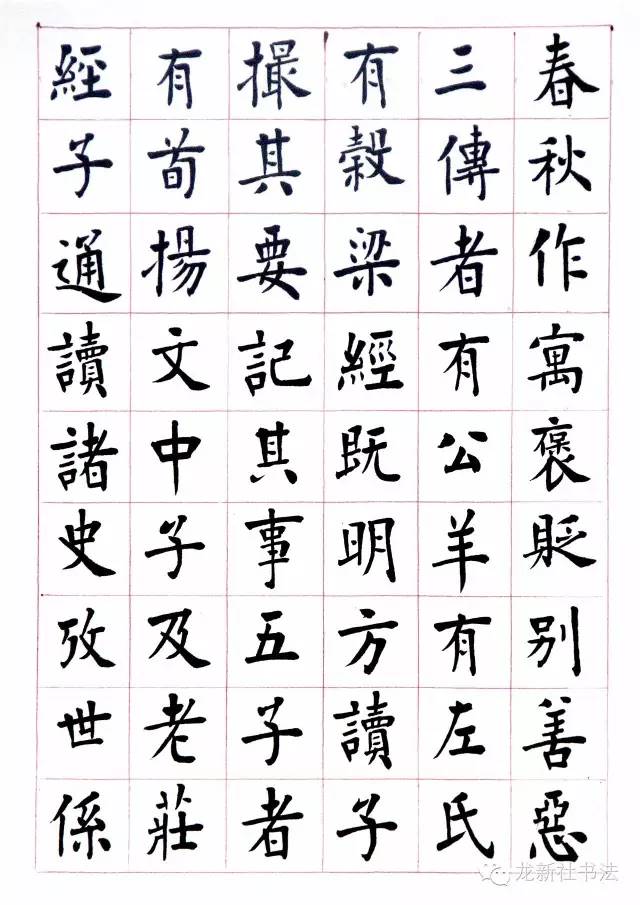 春秋作寓褒貶别善惡
三傳者有公羊有左氏
有榖梁經既明方讀子
撮其要記其事五子者
有荀揚文中子及老莊
經子通讀諸史攷世係
龙新社书法